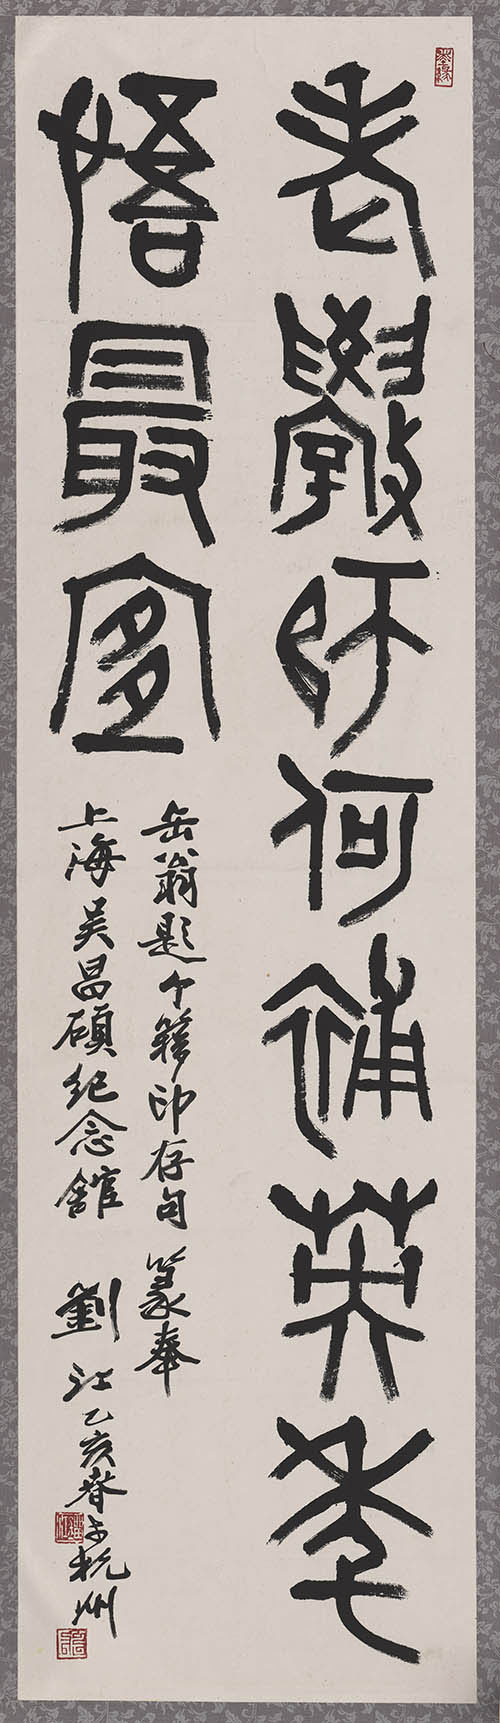 老斅師何補英年
悟最宜
缶翁題个簃印存句篆奉
上海吴昌碩紀念館 劉江乙亥春于杭州